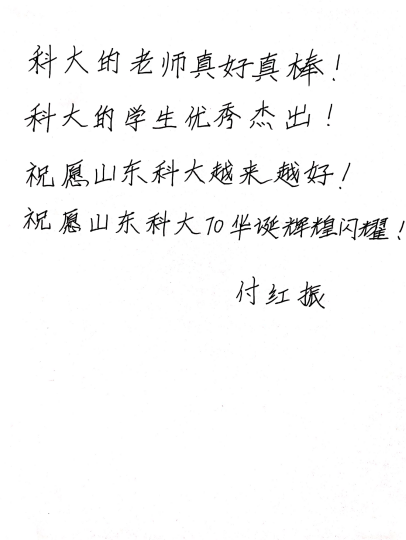 科大的老师真好真棒！
科大的学生优秀杰出！
祝愿山东科大越来越好！
祝愿山东科大70华诞辉煌闪耀！
付红振